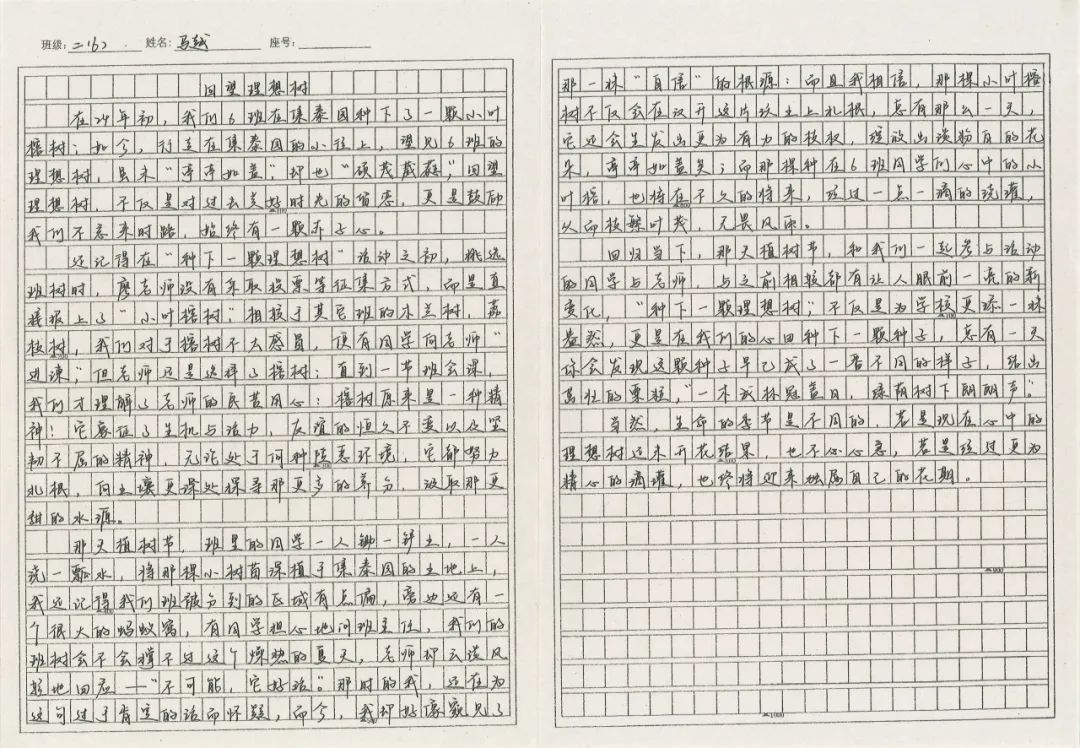 班级：二（6） 姓名：马越 座号：
回望理想树
在24年初，我们6班在集泰园种下了一颗小叶
榕树；如今，行走在集泰园的小径上，望见6班的
理想树，虽未“亭亭如盖”；却也“硕茂蕃蕤”；回望
理想树，不仅是对过去美好时光的留恋，更是鼓励
我们不忘来时路，始终有一颗赤子心。
还记得在“种下一颗理想树”活动之初，挑选
班树时，廖老师没有采取投票等征集方式，而是直
接报上了“小叶榕树”相较于其它班的木兰树，荔
枝树，我们对于榕树不太感冒，便有同学向老师“
进谏”；但老师还是选择了榕树；直到一节班会课，
我们才理解了老师的良苦用心：榕树原来是一种精
神！它象征了生机与活力，友谊的恒久不变以及坚
韧不屈的精神，无论处于何种恶环境，它都努力
扎根，向土壤更深处探寻那更多的养分，汲取那更
甜的水源。
那天植树节，班里的同学一人锄一锹土，一人
浇一瓢水，将那棵小树苗深植于集泰园的土地上，
我还记得我们班被分到的区域有点偏，旁边还有一
个很大的蚂蚁窝，有同学担心地问班主任，我们的
班树会不会撑不过这个燥热的夏天，老师却云淡风
轻地回应——“不可能，它好活。”那时的我，还在为
这句过于肯定的话而怀疑，而今，我却好像窥见了
那一抹“自信”的根源：而且我相信，那棵小叶榕
树不仅会在汉开这片沃土上扎根，总有那么一天，
它还会生发出更为有力的枝杈，绽放出谈物自的花
朵，亭亭如盖矣；而那棵种在6班同学们心中的小
叶榕，也将在不久的将来，经过一点一滴的浇灌，
从而枝繁叶茂，无畏风雨。
回归当下，那天植树节，和我们一起参与活动
的同学与老师，与之前相较都有让人眼前一亮的新
变化，“种下一颗理想树”；不仅是为学校更添一抹
盎然，更是在我们的心田种下一颗种子，总有一天
你会发现这颗种子早已成了一番不同的样子，结出
茁壮的果粒，“一木成林冠盖日，绿荫树下朗朗声”。
当然，生命的季节是不同的，若是现在心中的
理想树还未开花结果，也不必心急，若是经过更为
精心的滴灌，也终将迎来独属自己的花期。